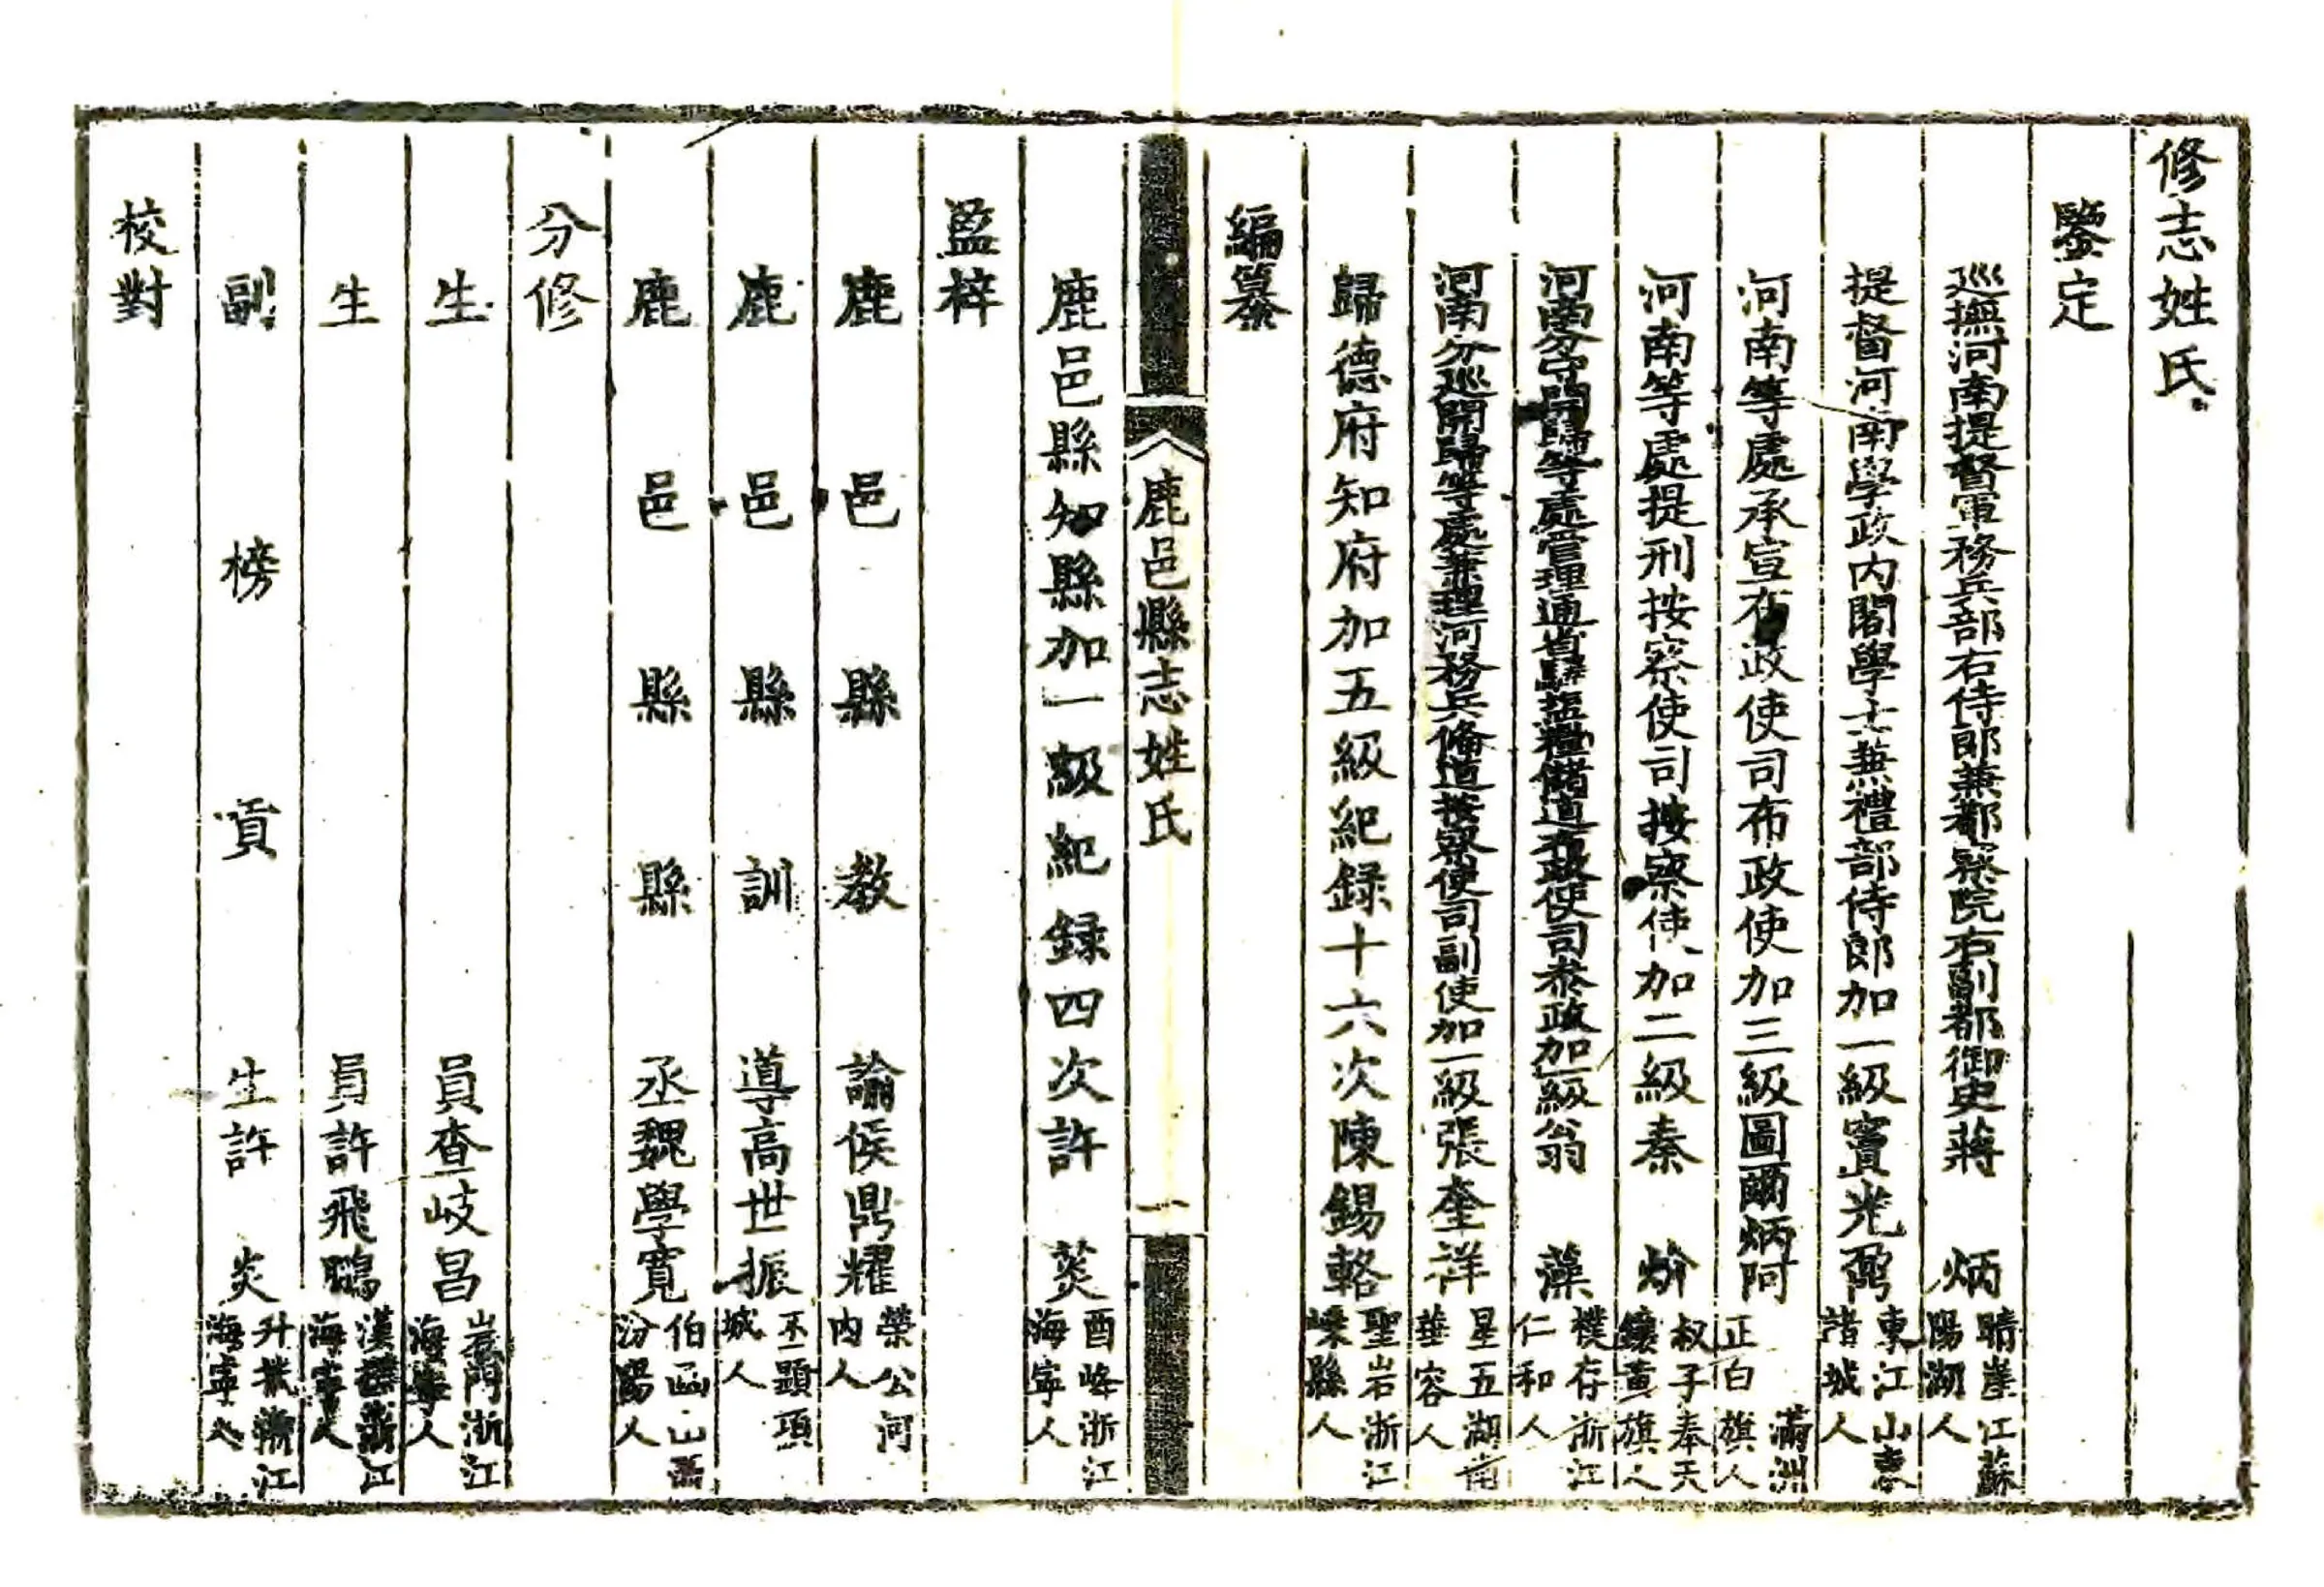 修志姓氏
鑒定
巡撫河南提督軍務兵部右侍郎兼都察院右副都御史蔣炳晴崖江蘇陽湖人
提督河南學政內閣學士兼禮部侍郎加一級竇光鼐東江山東諸城人
河南等處承宣布政使司布政使加三級圖爾炳阿滿洲正白旗人
河南等處提刑按察使司按察使加二級秦㶛叔子奉天鑲黃旗人
河南分守開歸等處管理通省驛鹽糧儲道布政使司叅政加一級翁藻樸存浙江仁和人
河南分巡開歸等處兼理河務兵備道按察使司副使加一級張奎祥星五湖南華容人
歸德府知府加五級紀録十六次陳錫輅聖岩浙江嵊縣人
編纂
鹿邑縣志姓氏 一
鹿邑縣知縣加一級紀録四次許菼酉峰浙江海寧人
監梓
鹿邑縣教諭侯鼎耀榮公河內人
鹿邑縣訓導高世振丕顯項城人
鹿邑縣縣丞魏學寬伯函山西汾陽人
分修
生員查岐昌岩門浙江海寧人
生員許飛鵬漢浙江海寧人
副榜貢生許炎升浙江海寧人
校對